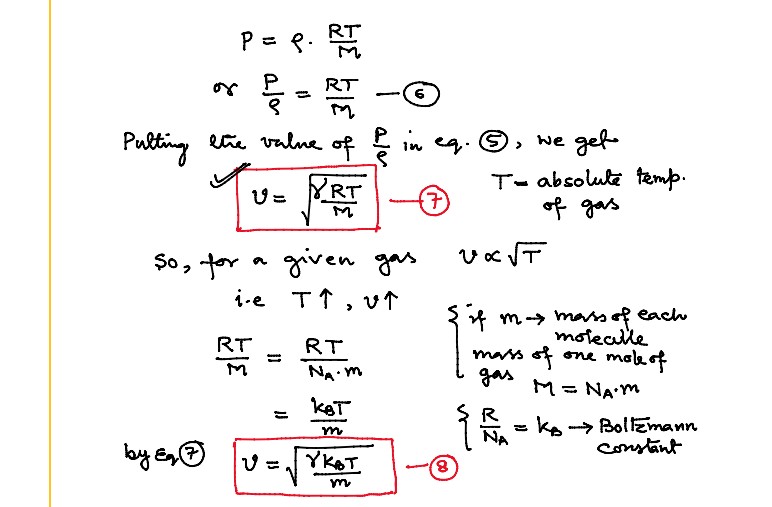 P = ρ. RT/M
or P/ρ = RT/M — ⑥
Putting the value of P/ρ in eq. ⑤, we get
v = √(γRT/M) — ⑦
T = absolute temp. of gas
So, for a given gas v ∝ √T
i.e T↑, v↑
{ if m → mass of each
molecule
mass of one mole of
gas
M = NA.m
RT/M = RT/NA.m
= kBT/m
{ R/NA = kB → Boltzmann
constant
by Eq ⑦ v = √(γkBT/m) — ⑧